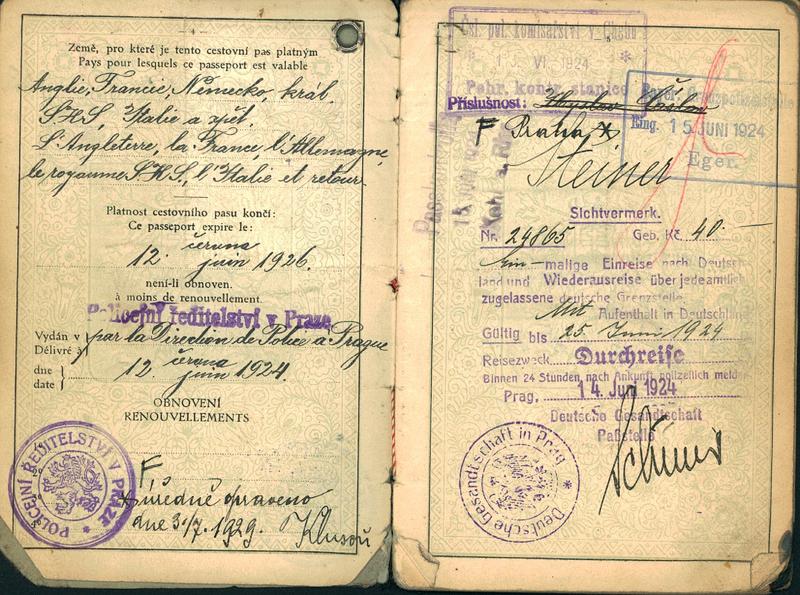 Země, pro které je tento cestovní pas platným
Pays pour lesquels ce passeport est valable
Anglie, Francie, Německo, král.
S.H.S, Italie a zpět.
L'Angleterre, la France, l'Allemagne,
le royaume S.H.S., l'Italie et retour.
Platnost cestovního pasu končí:
Ce passeport expire le:
června
12. juin 1926.
není-li obnoven.
à moins de renouvellement.
Policejní ředitelství v Praze
Vydán v
Délivré à
par la Direction de Police à Prague
dne
date
června
12. juin 1924.
OBNOVENÍ
RENOUVELLEMENTS
POLICEJNÍ ŘEDITELSTVÍ V PRAZE
F
úředně opraveno
dne 31/7. 1929.
Čsl. pol. komisařství v Chebu
VI. 1924
Pohr. kontr. stanice
Příslušnost:
Eing. 15 JUNI 1924
Eger.
F Praha
Steiner
Sichtvermerk.
Nr. 24865 Geb. Kč 40.-
Ein-malige Einreise nach Deutsch-
land und Wiederausreise über jede amtlich
zugelassene deutsche Grenzstelle.
Mit Aufenthalt in Deutschland
Gültig bis 25. Juni 1924
Reisezweck Durchreise
Binnen 24 Stunden nach Ankunft polizeilich melden
Prag, 14. Juni 1924
Deutsche Gesandtschaft
Paßstelle
Deutsche Gesandtschaft in Prag